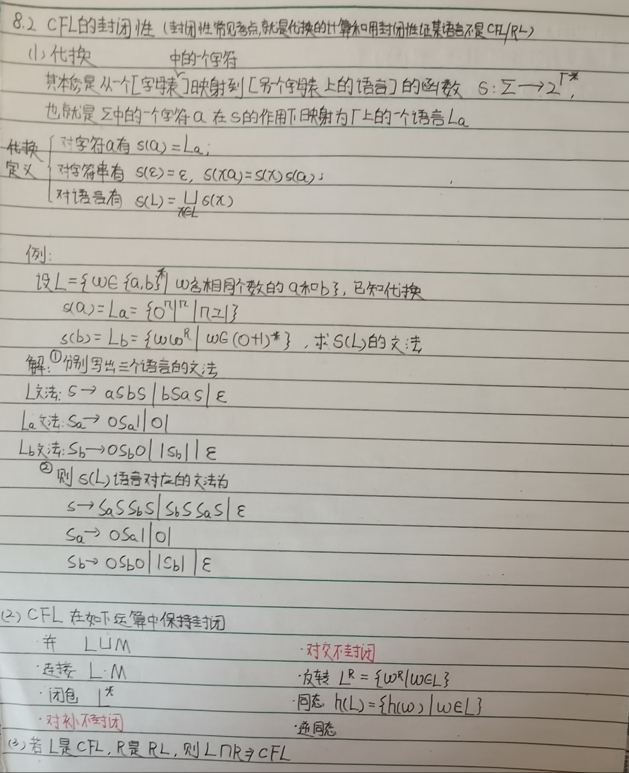 8.2 CFL的封闭性 (封闭性常见考点就是代换的计算和用封闭性证某语言不是CFL/RL)
(1) 代换
中的一个字符
其本质是从一个[字母表]映射到[另个字母表上的语言]的函数 S: Σ→2^Γ*,
也就是Σ中的一个字符a 在S的作用下映射为Γ上的一个语言La
代换定义
对字符a有 s(a)=La;
对字符串有 s(ε)=ε, s(xa)=s(x)s(a);
对语言有 s(L)=∪x∈L s(x)
例:
设L={w∈{a,b}*| w含相同个数的a和b}, 已知代换
s(a)=La={0ⁿ1ⁿ|n≥1}
s(b)=Lb={ww^R| w∈(0+1)*}, 求S(L)的文法
解: ①分别写出三个语言的文法
L文法: S→ aSbS|bSaS|ε
La文法: Sa→ 0Sa1|01
Lb文法: Sb→0Sb0|1Sb1|ε
②则 s(L)语言对应的文法为
S→SaSSbS|SbSSaS|ε
Sa→ 0Sa1|01
Sb→ 0Sb0|1Sb1|ε
(2) CFL 在如下运算中保持封闭
·并 L∪M
·对交不封闭
·连接 L·M
·反转 L^R={w^R|w∈L}
·闭包 L*
·同态 h(L)={h(w)|w∈L}
·对补不封闭
·逆同态
(3) 若L是CFL, R是RL, 则L∩R∋CFL